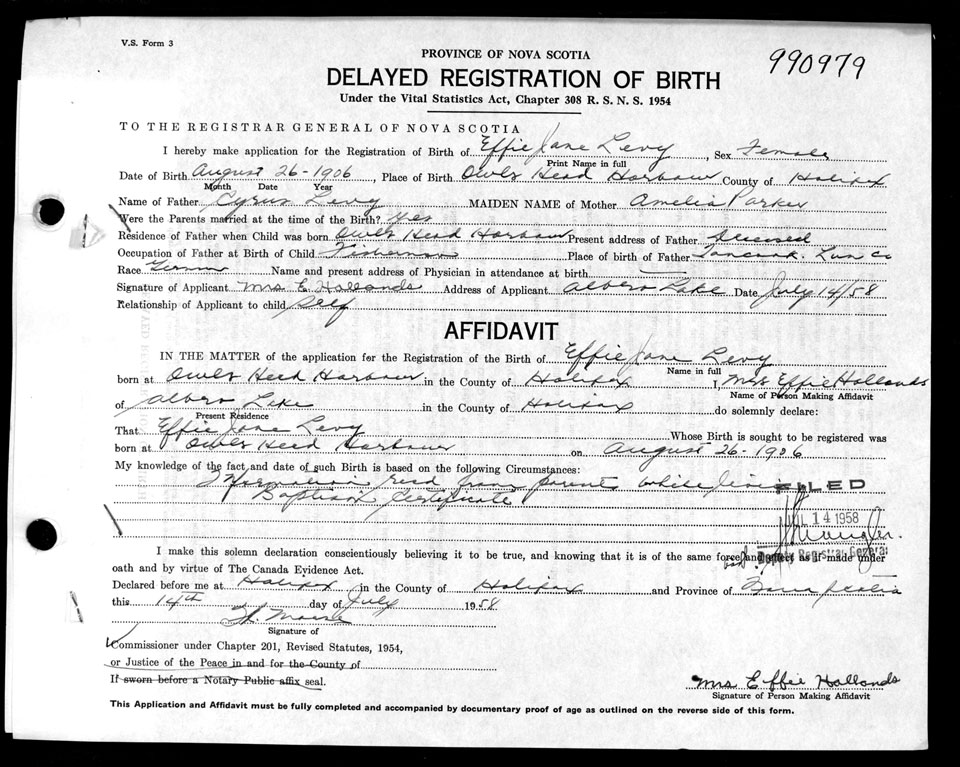 V.S. Form 3
PROVINCE OF NOVA SCOTIA
990979
DELAYED REGISTRATION OF BIRTH
Under the Vital Statistics Act, Chapter 308 R. S. N. S. 1954
TO THE REGISTRAR GENERAL OF NOVA SCOTIA
I hereby make application for the Registration of Birth of Effie Jane Levy, Sex Female
Print Name in full
Date of Birth August 26-1906, Place of Birth Owls Head Harbour County of Halifax
Month Date Year
Name of Father Cyrus Levy MAIDEN NAME of Mother Amelia Parker
Were the Parents married at the time of the Birth? Yes
Residence of Father when Child was born Owls Head Harbour Present address of Father Deceased
Occupation of Father at Birth of Child Fisherman Place of birth of Father Tancook. Lun Co
Race German Name and present address of Physician in attendance at birth —
Signature of Applicant Mrs E Hollands Address of Applicant Albero Lake Date July 14/58
Relationship of Applicant to child Self
AFFIDAVIT
IN THE MATTER of the application for the Registration of the Birth of Effie Jane Levy
Name in full
born at Owls Head Harbour in the County of Halifax I, Mrs Effie Hollands
Name of Person Making Affidavit
of Albero Lake in the County of Halifax do solemnly declare:
Present Residence
That Effie Jane Levy Whose Birth is sought to be registered was
born at Owls Head Harbour on August 26-1906
My knowledge of the fact and date of such Birth is based on the following Circumstances:
Information from parents while living
Baptism Certificate
FILED
14 1958
Deputy Registrar General
I make this solemn declaration conscientiously believing it to be true, and knowing that it is of the same force and effect as if made under
oath and by virtue of The Canada Evidence Act.
Declared before me at Halifax in the County of Halifax and Province of Nova Scotia
this 14th day of July 1958
Signature of
Commissioner under Chapter 201, Revised Statutes, 1954,
or Justice of the Peace in and for the County of
If sworn before a Notary Public affix seal.
Mrs Effie Hollands
Signature of Person Making Affidavit
This Application and Affidavit must be fully completed and accompanied by documentary proof of age as outlined on the reverse side of this form.